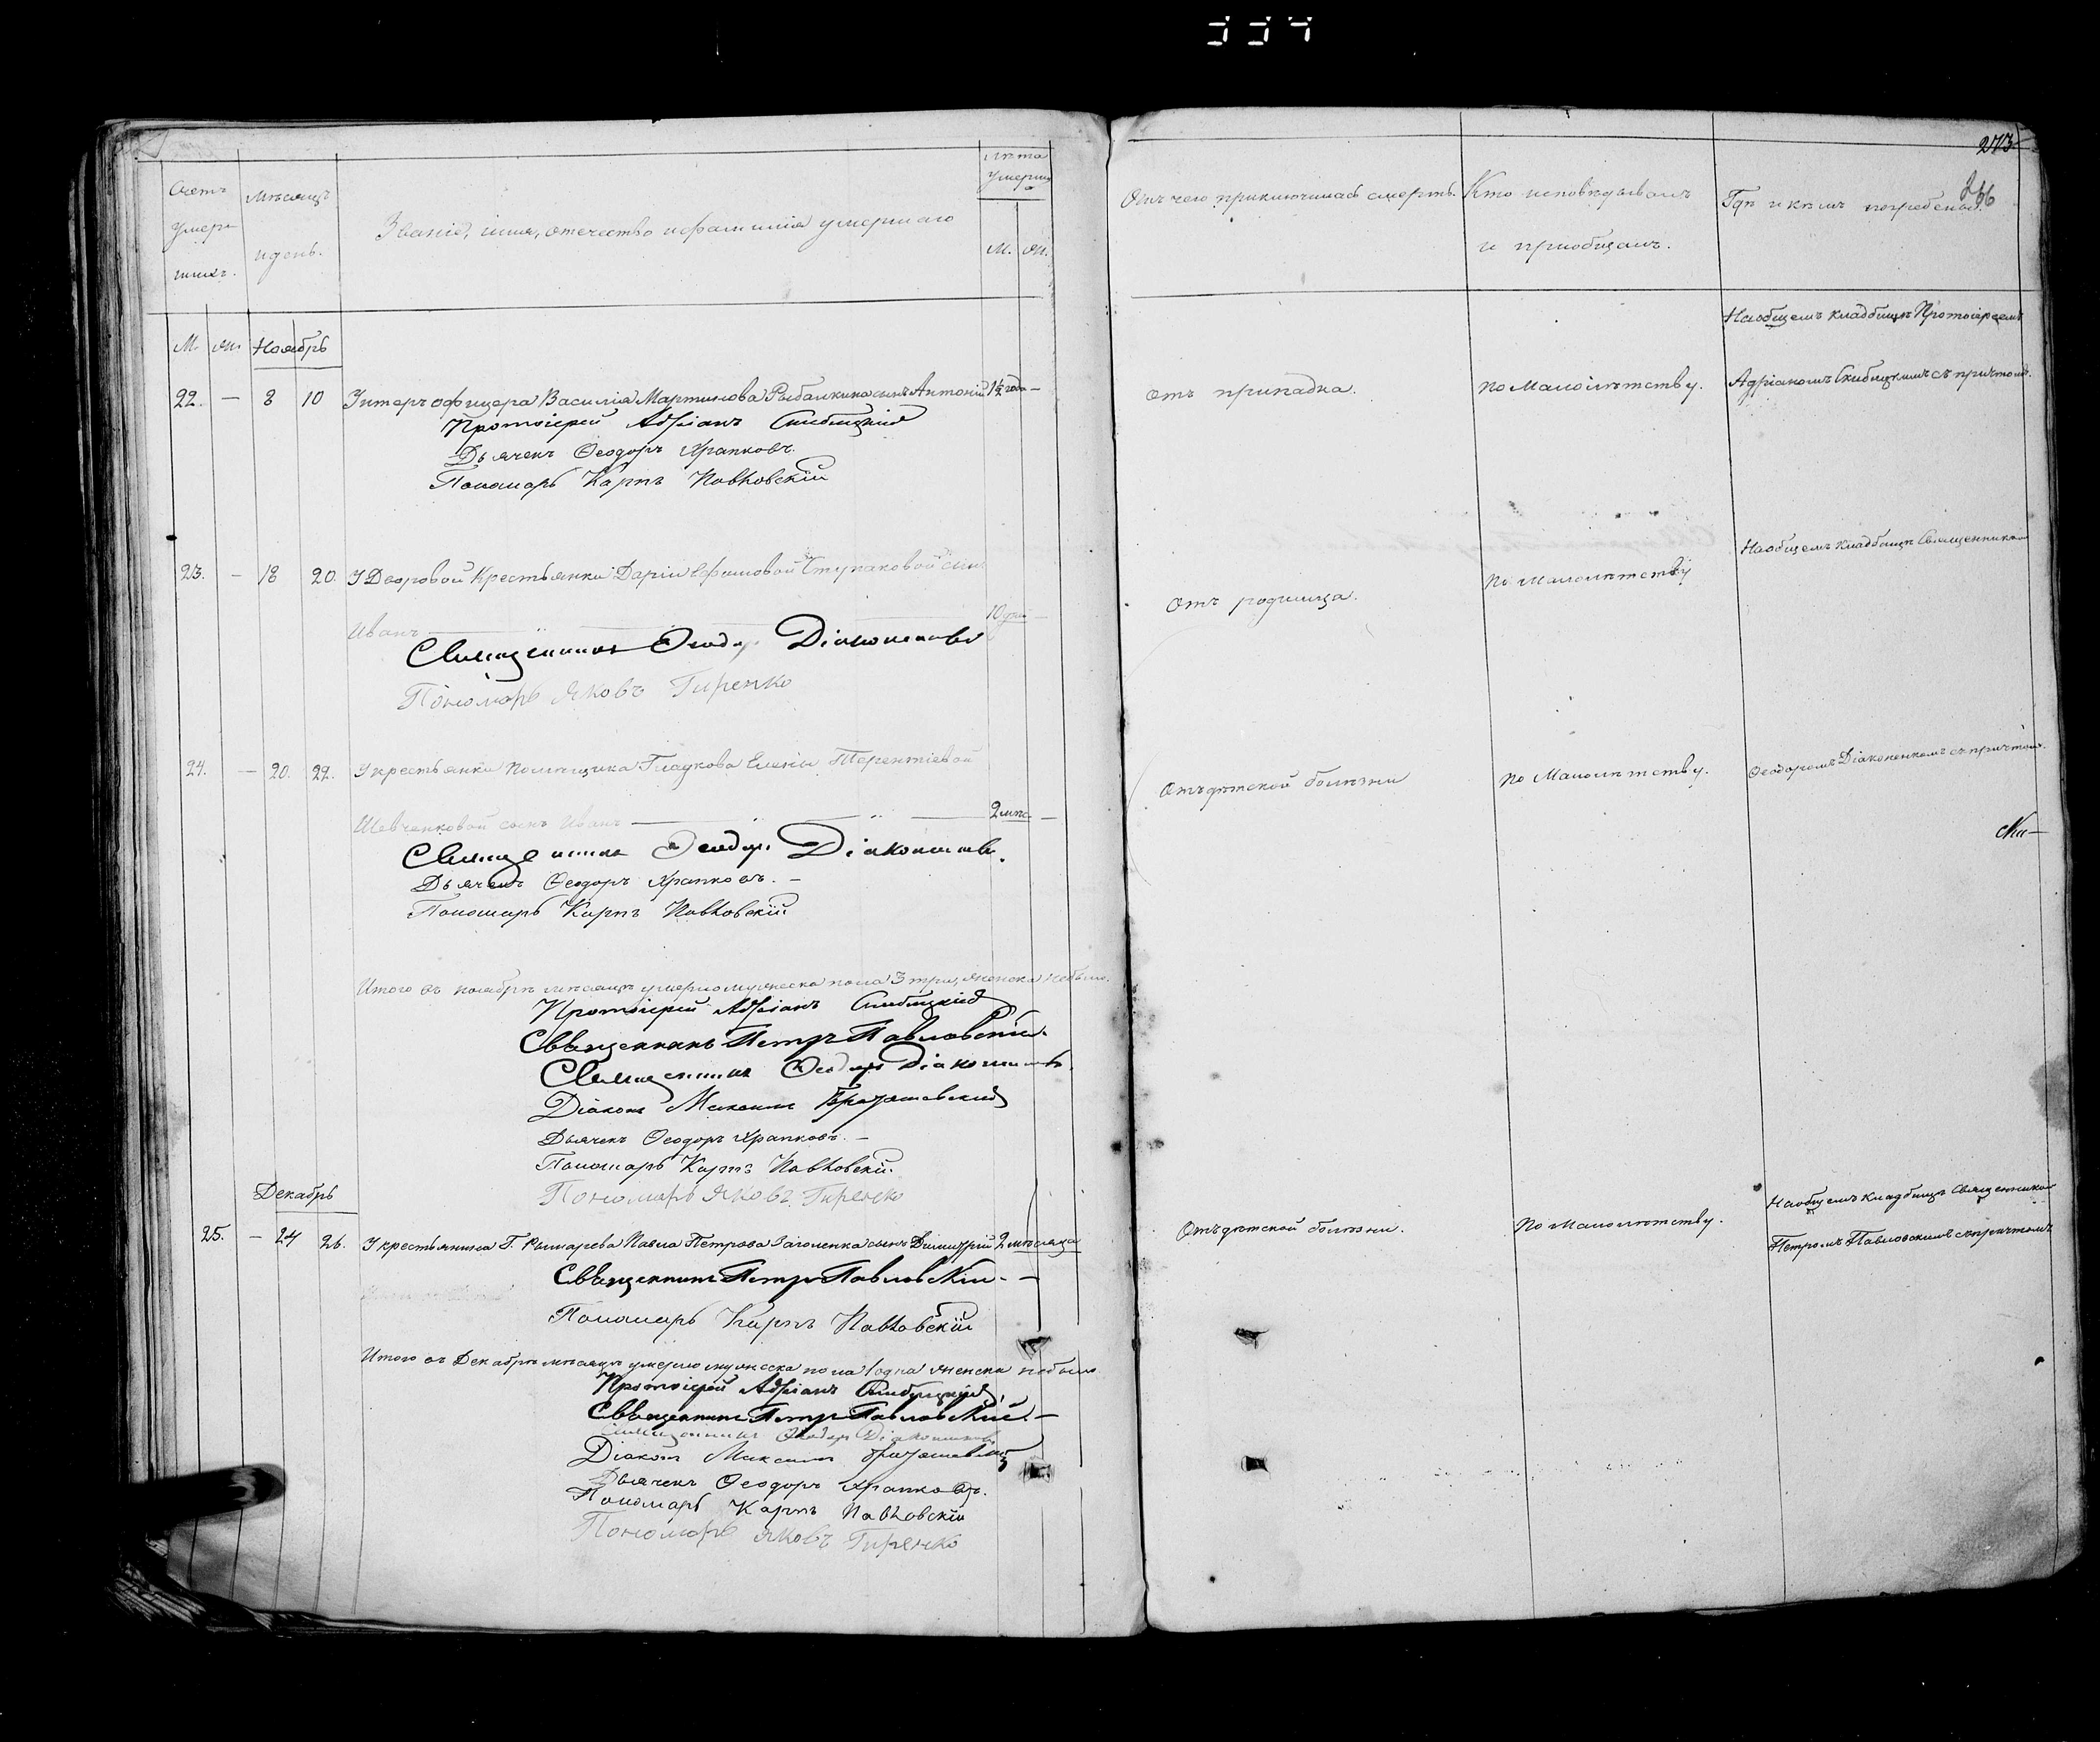 334
273
266
Счетъ умер- шихъ.
Мѣсяцъ и день.
Званіе, имя, отечество и фамилія умершаго
Лѣта умерша
М. Ж.
Отъ чего приключилась смерть.
Кто исповѣдывалъ и приобщалъ.
Гдѣ и кѣмъ погребены.
М. Ж. Ноябрь
22. — 8 10 Унтеръ офицера Василія Мартинова Рыбалкина сынъ Антоній 1½ года —
Отъ припадка. По Малолѣтству. На общемъ кладбищѣ Протоіереемъ
Адріаномъ Скибицкимъ съ причтомъ.
Протоіерей Адріанъ Скибицкій
Дьячекъ Ѳеодоръ Храпковъ.
Пономарь Карпъ Павковскій
23. — 18 20. У Дворовой Крестьянки Даріи Ефимовой Ступаковой сынъ
Иванъ 10 дней —
Отъ родимца. По Малолѣтству На общемъ Кладбищѣ Священникомъ
Священникъ Ѳеодоръ Діаконенковъ
Пономарь Яковъ Гиренко
24. — 20. 22. У крестьянки Помѣщика Гладкова Елены Терентіевой
Шевченковой сынъ Иванъ 2 мѣс. —
Отъ дѣтской болѣзни По Малолѣтству. Ѳеодоромъ Діаконенкомъ съ причтомъ.
Священникъ Ѳеодоръ Діаконенковъ.
Дьячекъ Ѳеодоръ Храпковъ. —
Пономарь Карпъ Павковскій
Итого въ ноябрѣ мѣсяцѣ умерло мужеска пола 3 три, женска небыло.
Протоіерей Адріанъ Скибицкій
Священникъ Петръ Павловскій.
Священникъ Ѳеодоръ Діаконенковъ.
Діаконъ Максимъ
Дьячекъ Ѳеодоръ Храпковъ. —
Пономарь Карпъ Павковскій.
Пономарь Яковъ Гиренко
Декабрь
25. — 24 26. У крестьянина Г. Рымарева Павла Петрова Заголенка сынъ Димитрій 2 мѣсяца
Отъ дѣтской болѣзни. По Малолѣтству. На общемъ Кладбищѣ Священникомъ
Петромъ Павловскимъ съ причтомъ
Священникъ Петръ Павловскій. —
Пономарь Карпъ Павковскій
Итого въ Декабрѣ мѣсяцѣ умерло мужеска пола 1 одна женска небыло
Протоіерей Адріанъ Скибицкій,
Священникъ Петръ Павловскій. —
Священникъ Ѳеодоръ Діаконенковъ
Діаконъ Максимъ
Дьячекъ Ѳеодоръ Храпковъ.
Пономарь Карпъ Павковскій
Пономарь Яковъ Гиренко